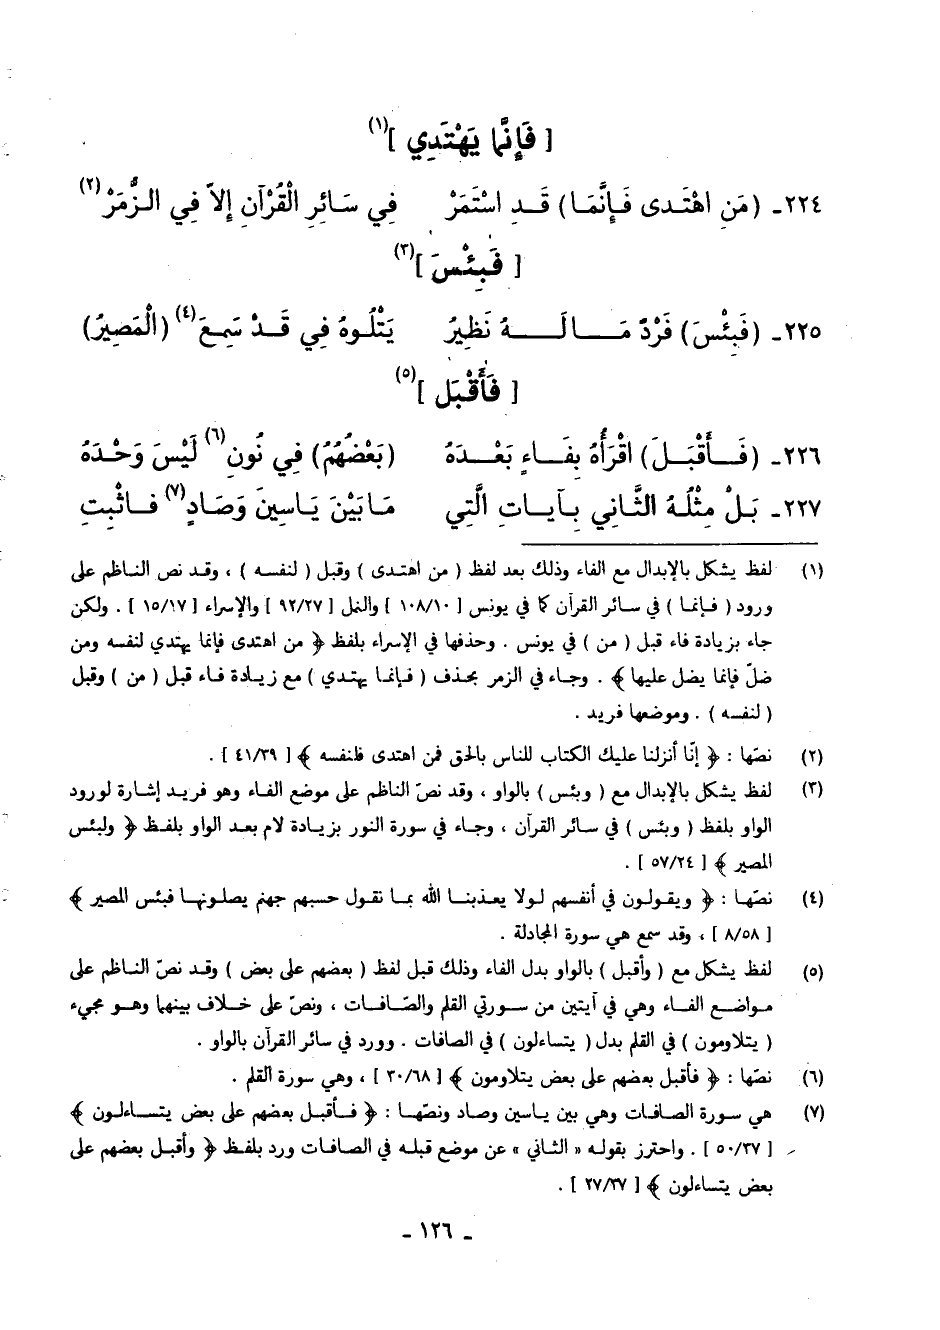 [ فَإِنَّما يَهْتَدِي ](١)
٢٢٤ـ (مَنِ اهْتَدى فَإِنَّمَا) قَدِ اسْتَمَرْ    فِي سَائِرِ الْقُرْآنِ إِلاَّ فِي الزُّمَرْ(٢)
[ فَبِئْسَ ](٣)
٢٢٥ـ (فَبِئْسَ) فَرْدٌ مَالَهُ نَظِيرُ    يَتْلُوهُ فِي قَدْ سَمِعَ(٤) (الْمَصِيرُ)
[ فَأَقْبَلَ ](٥)
٢٢٦ـ (فَأَقْبَلَ) اقْرَأْهُ بِفَاءٍ بَعْدَهُ    (بَعْضُهُمُ) فِي نُونِ(٦) لَيْسَ وَحْدَهُ
٢٢٧ـ بَلْ مِثْلُهُ الثَّانِي بِآيَاتِ الَّتِي    مَابَيْنَ يَاسِينَ وَصَادٍ(٧) فَاثْبِتِ
(١) لفظ يشكل بالإبدال مع الفاء وذلك بعد لفظ ( من اهتدى ) وقبل ( لنفسه ) ، وقد نص الناظم على
ورود ( فإنما ) في سائر القرآن كما في يونس [ ١٠٨/١٠ ] والنمل [ ٩٢/٢٧ ] والإسراء [ ١٥/١٧ ] . ولكن
جاء بزيادة فاء قبل ( من ) في يونس . وحذفها في الإسراء بلفظ ﴿ من اهتدى فإنما يهتدي لنفسه ومن
ضلّ فإنما يضل عليها ﴾ . وجاء في الزمر بحذف ( فإنما يهتدي ) مع زيادة فاء قبل ( من ) وقبل
( لنفسه ) . وموضعها فريد .
(٢) نصّها : ﴿ إنّا أنزلنا عليك الكتاب للناس بالحق فمن اهتدى فلنفسه ﴾ [ ٤١/٣٩ ] .
(٣) لفظ يشكل بالإبدال مع ( وبئس ) بالواو ، وقد نصّ الناظم على موضع الفاء وهو فريد إشارة لورود
الواو بلفظ ( وبئس ) في سائر القرآن ، وجاء في سورة النور بزيادة لام بعد الواو بلفظ ﴿ ولبئس
المصير ﴾ [ ٥٧/٢٤ ] .
(٤) نصّها : ﴿ ويقولون في أنفسهم لولا يعذبنا الله بما نقول حسبهم جهنم يصلونها فبئس المصير ﴾
[ ٨/٥٨ ] ، وقد سمع هي سورة المجادلة .
(٥) لفظ يشكل مع ( وأقبل ) بالواو بدل الفاء وذلك قبل لفظ ( بعضهم على بعض ) وقد نصّ الناظم على
مواضع الفاء وهي في آيتين من سورتي القلم والصّافات ، ونصّ على خلاف بينهما وهو مجيء
( يتلاومون ) في القلم بدل ( يتساءلون ) في الصافات . وورد في سائر القرآن بالواو .
(٦) نصّها : ﴿ فأقبل بعضهم على بعض يتلاومون ﴾ [ ٣٠/٦٨ ] ، وهي سورة القلم .
(٧) هي سورة الصافات وهي بين ياسين وصاد ونصّها : ﴿ فأقبل بعضهم على بعض يتساءلون ﴾
[ ٥٠/٣٧ ] . واحترز بقوله « الثاني » عن موضع قبله في الصافات ورد بلفظ ﴿ وأقبل بعضهم على
بعض يتساءلون ﴾ [ ٢٧/٣٧ ] .
ـ ١٢٦ ـ